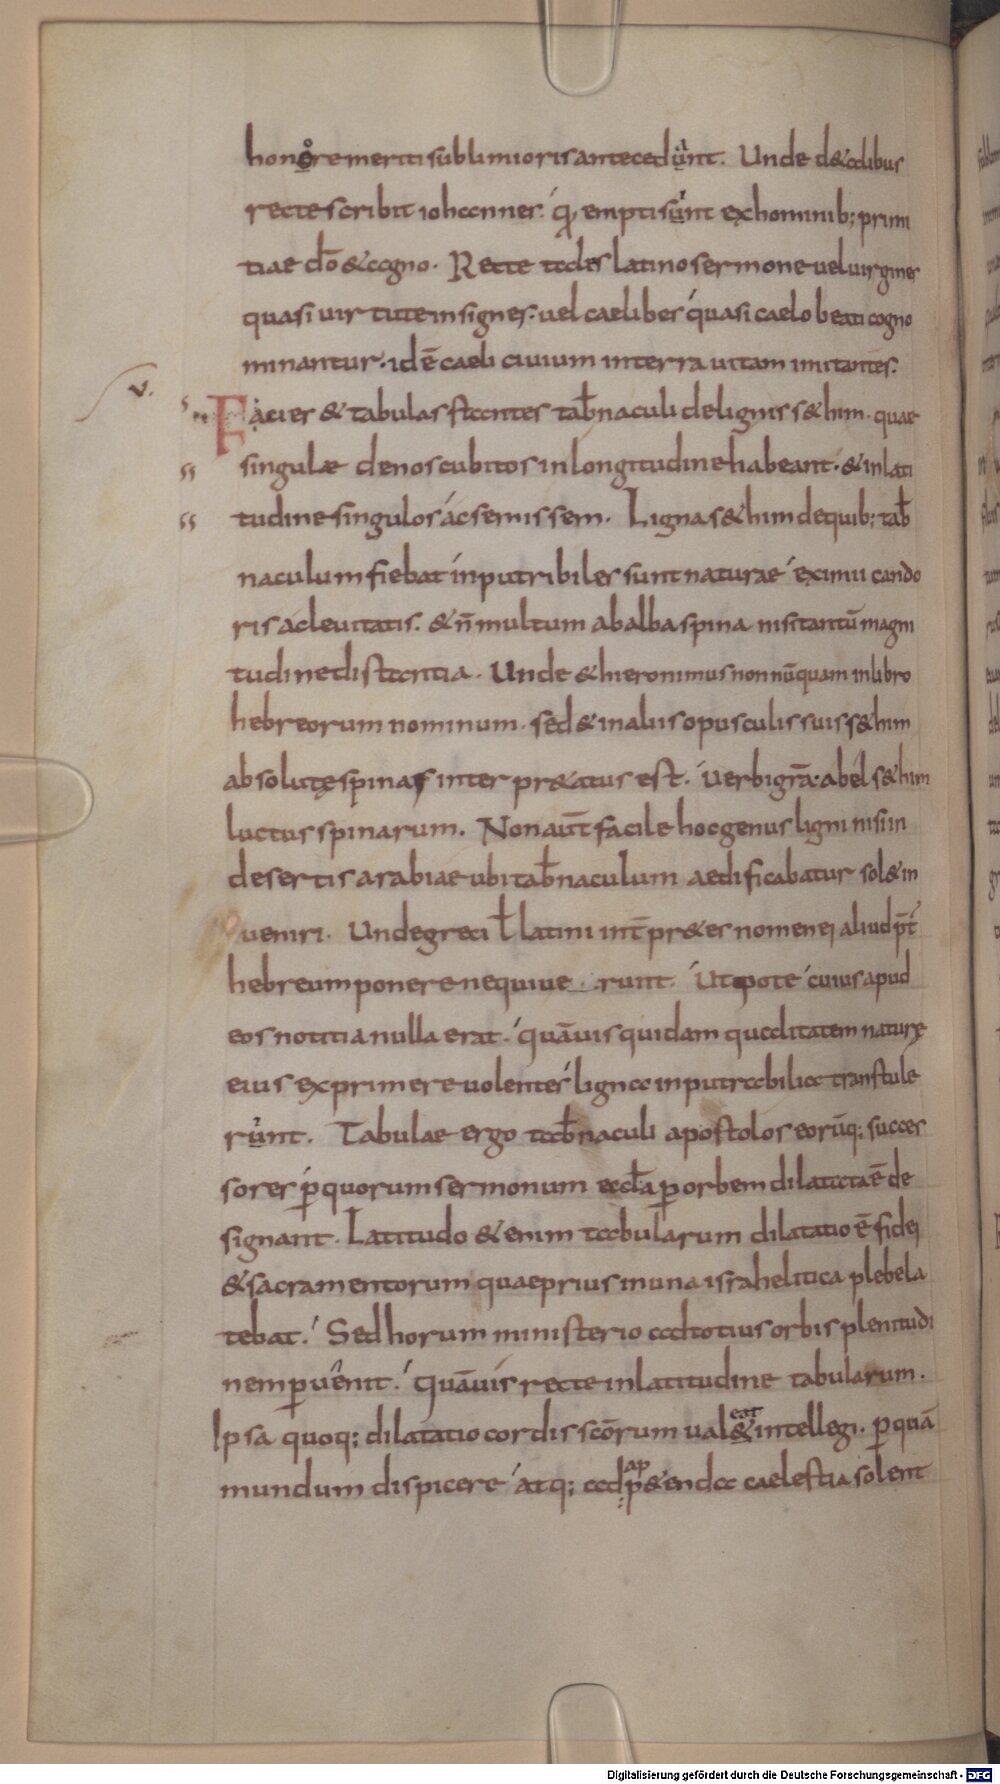 honore meriti sublimioris antecedunt. Unde de talibus
recte scribit iohannes. q̅ empti sunt ex hominib; primi
tiae do̅ & agno. Recte tales latino sermone uel uirgines
quasi uirtute insignes. uel caelibes quasi caelo beati cogno
minantur. id e̅ caeli ciuium in terra uitam imitantes.
v.
Facies & tabulas stantes tab̅naculi de lignis s&him. quae
singulae denos cubitos in longitudine habeant. & in lati
tudine singulos ac semissem. Ligna s&him de quib; tab̅
naculum fiebat inputribiles sunt naturae eximii cando
ris ac leuitatis. & n̅ multum ab alba spina nisi tantu̅ magni
tudine distantia. Unde & hieronimus non nu̅quam in libro
hebreorum nominum. sed & in aliis opusculis suis s&him
absolutę spinas interpr&atus est. uerbi gr̅a. abel s&him
luctus spinarum. Non aut̅ facile hoc genus ligni nisi in
desertis arabiae ubi tab̅naculum aedificabatur sol& in
ueniri. Unde greci ł latini int̅pr&es nomen ei aliud p̅t̅
hebreum ponere nequiue runt. Utpote cuius apud
eos notitia nulla erat. qua̅uis quidam qualitatem naturę
eius exprimere uolentes ligna inputrabilia transtule
runt. Tabulae ergo tab̅naculi apostolos eoru̅q; succes
sores p̲ quorum sermonum eccl̅a p̲ orbem dilatata e̅ de
signant. Latitudo &enim tabularum dilatatio e̅ fidei
& sacramentorum quae prius in una israhelitica plebe la
tebat. Sed horum ministerio ad totius orbis plenitudi
nem p̲uenit. qua̅uis recte in latitudine tabularum.
Ipsa quoq; dilatatio cordis sc̅orum ual&eat intellegi. p̲ qua̅
mundum dispicere atq; adp&enda caelestia solent
Digitalisierung gefördert durch die Deutsche Forschungsgemeinschaft - DFG